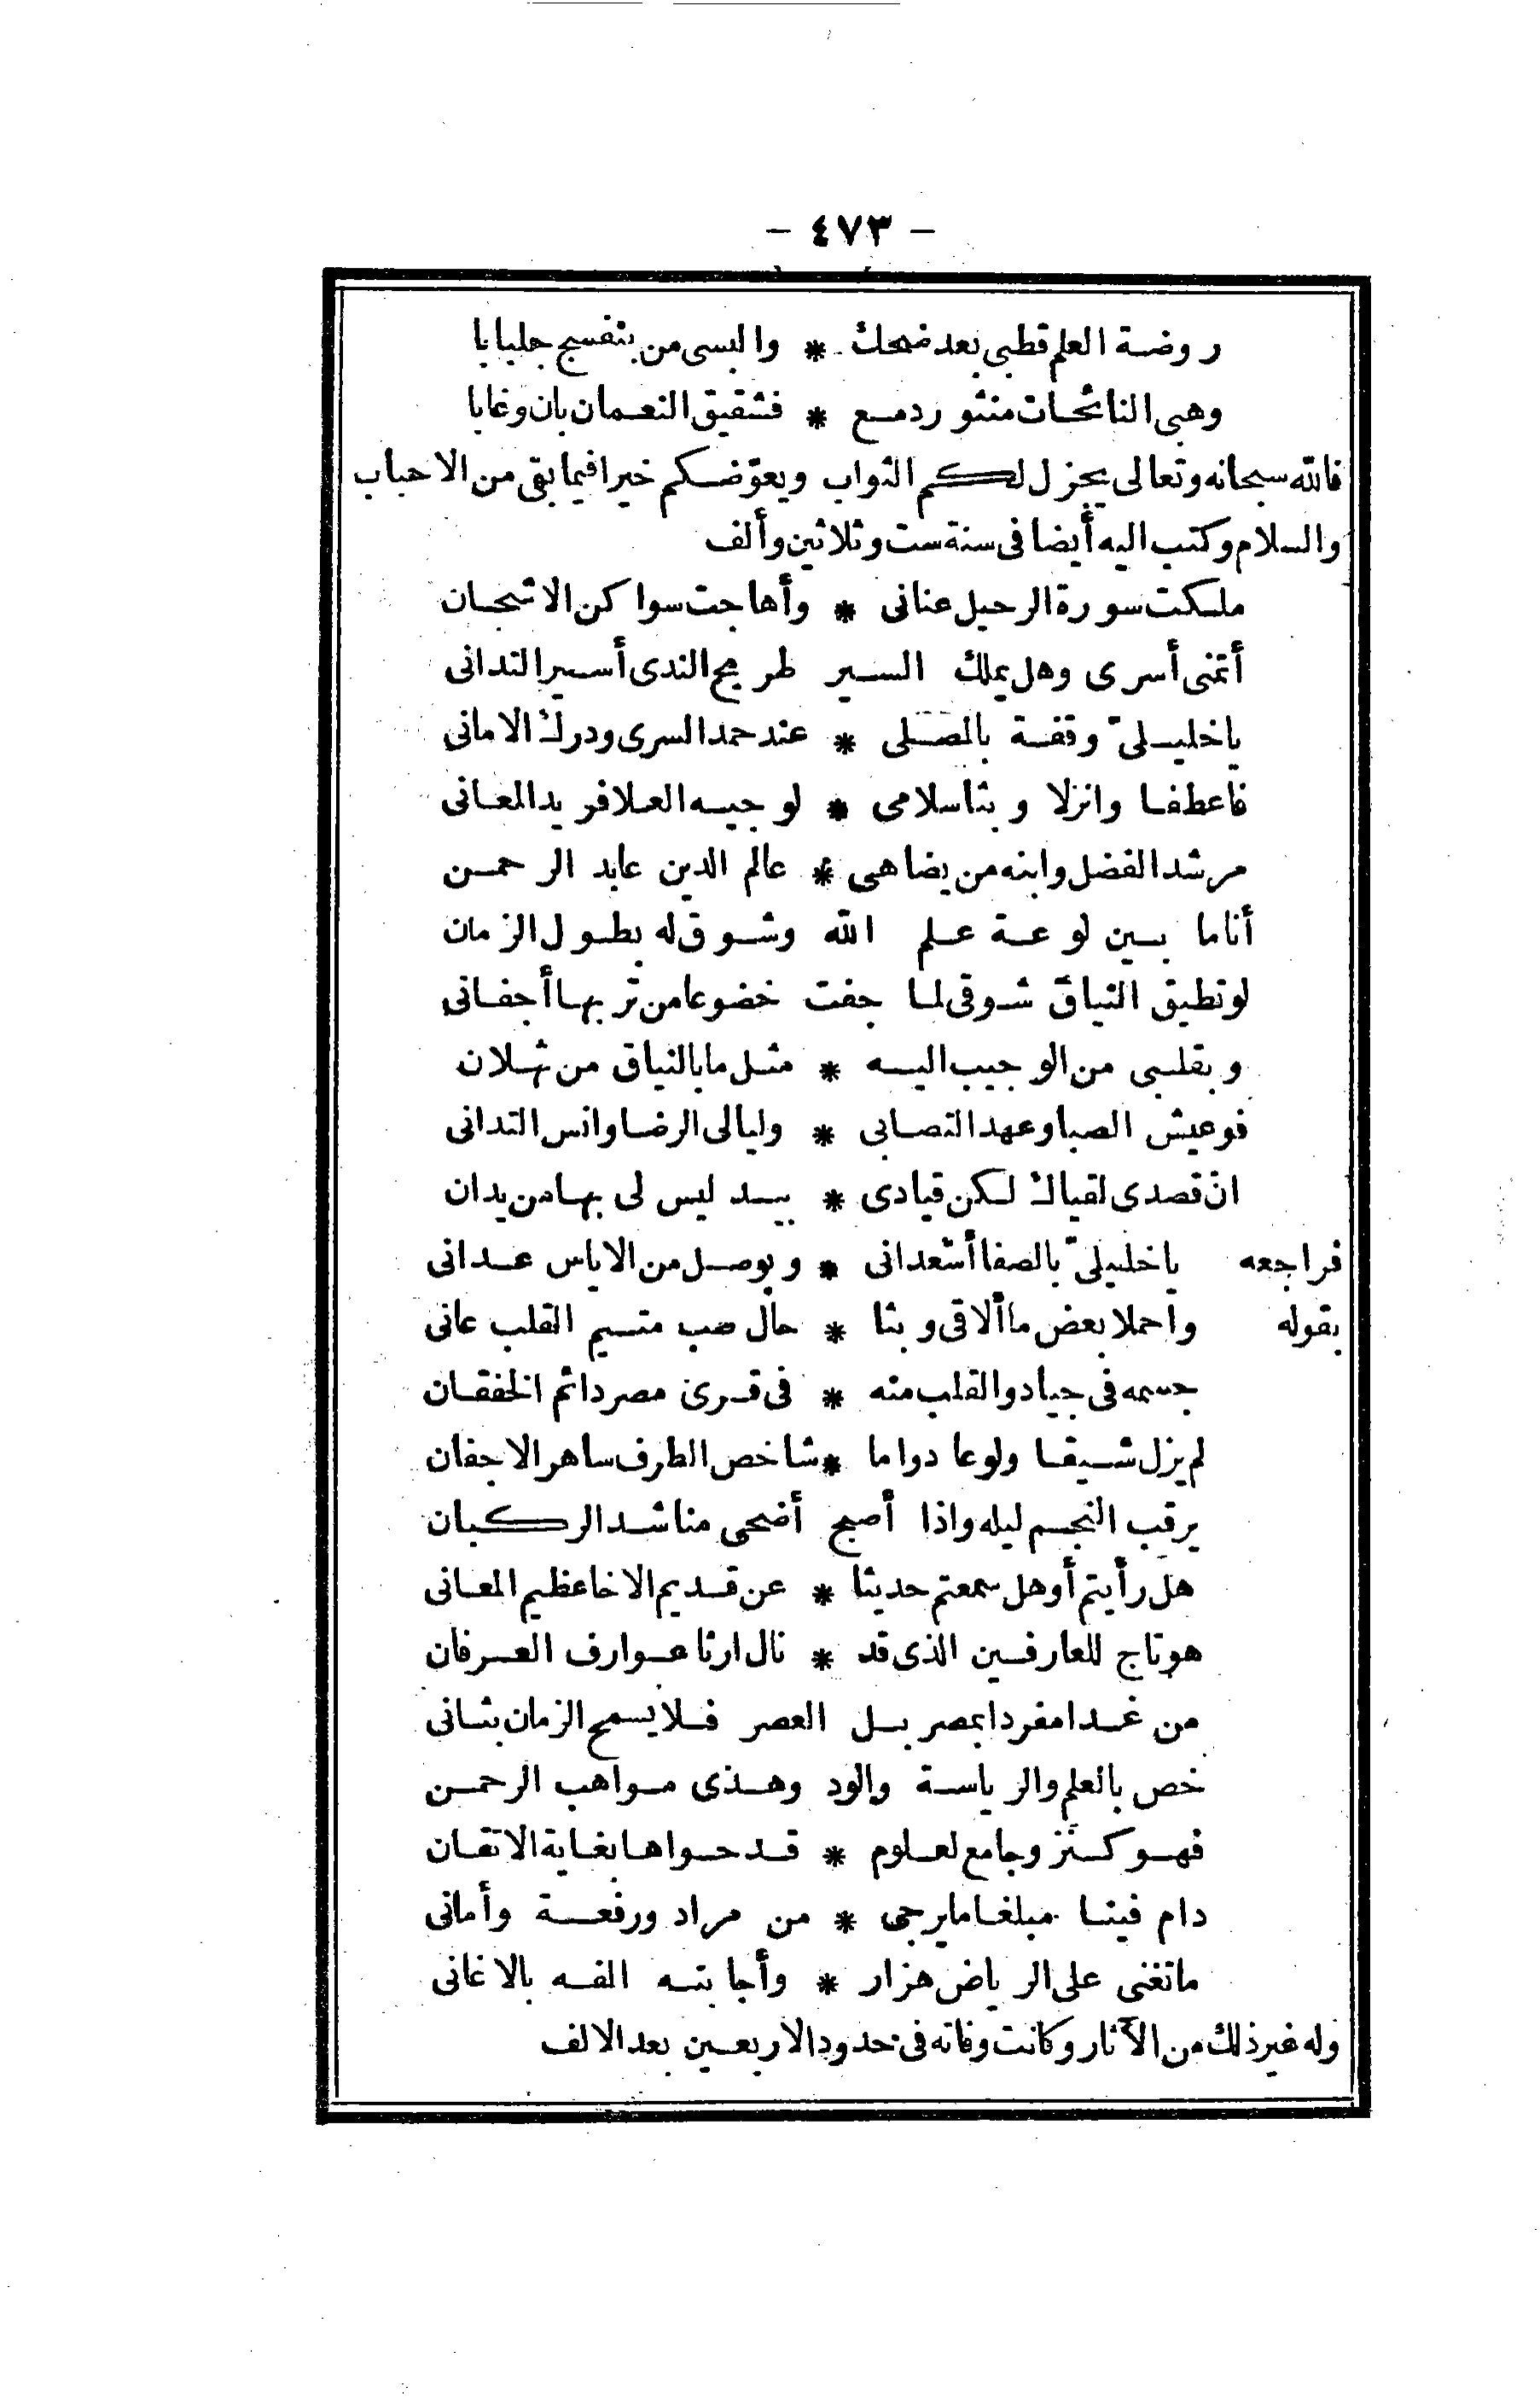 - ٤٧٣ -
روضة العلم قطبى بعد ضحك * والبسى من بنفسج جلبابا
وهبى النائحات منثور دمع * فشقيق النعمان بان وغابا
فالله سبحانه وتعالى يجزل لكم الثواب ويعوّضكم خيرا فيما بقى من الاحباب
والسلام وكتب اليه أيضا فى سنة ست وثلاثين وألف
ملكت سورة الرحيل عنانى * وأهاجت سواكن الاشجان
أتمنى أسرى وهل يملك السير طريح الندى أسير التدانى
ياخليلىّ وقفة بالمصلى * عند حمد السرى ودرك الامانى
فاعطفا وانزلا وبثا سلامى * لوجيه العلا فريد المعانى
مرشد الفضل وابنه من يضاهى * عالم الدين عابد الرحمن
أنا ما بين لوعة علم الله وشوق له بطول الزمان
لو تطيق النياق شوقى لما جفت خضوعا من تربها أجفانى
وبقلبى من الوجيب اليه * مثل ما بالنياق من ثهلان
فوعيش الصبا وعهد التصابى * وليالى الرضا وانس التدانى
انّ قصدى لقياك لكن قيادى * بيد ليس لى بها من يدان
فراجعه ياخليلىّ بالصفا أسعدانى * وبوصل من الاياس عدانى
بقوله واحملا بعض ما ألاقى وبثا * حال صب متيم القلب عانى
جسمه فى جياد والقلب منه * فى قرى مصر دائم الخفقان
لم يزل شيقا ولوعا دواما * شاخص الطرف ساهر الاجفان
يرقب النجم ليله واذا أصبح أضحى مناشد الركبان
هل رأيتم أو هل سمعتم حديثا * عن قديم الاخا عظيم المعانى
هو تاج للعارفين الذى قد * نال ارثا عوارف العرفان
من غدا مفردا بمصر بل العصر فلا يسمح الزمان بثانى
خص بالعلم والرياسة والود وهذى مواهب الرحمن
فهو كنز وجامع لعلوم * قد حواها بغاية الاتقان
دام فينا مبلغا ما يرجى * من مراد ورفعة وأمانى
ما تغنى على الرياض هزار * وأجابته الفه بالاغانى
وله غير ذلك من الآثار وكانت وفاته فى حدود الاربعين بعد الالف